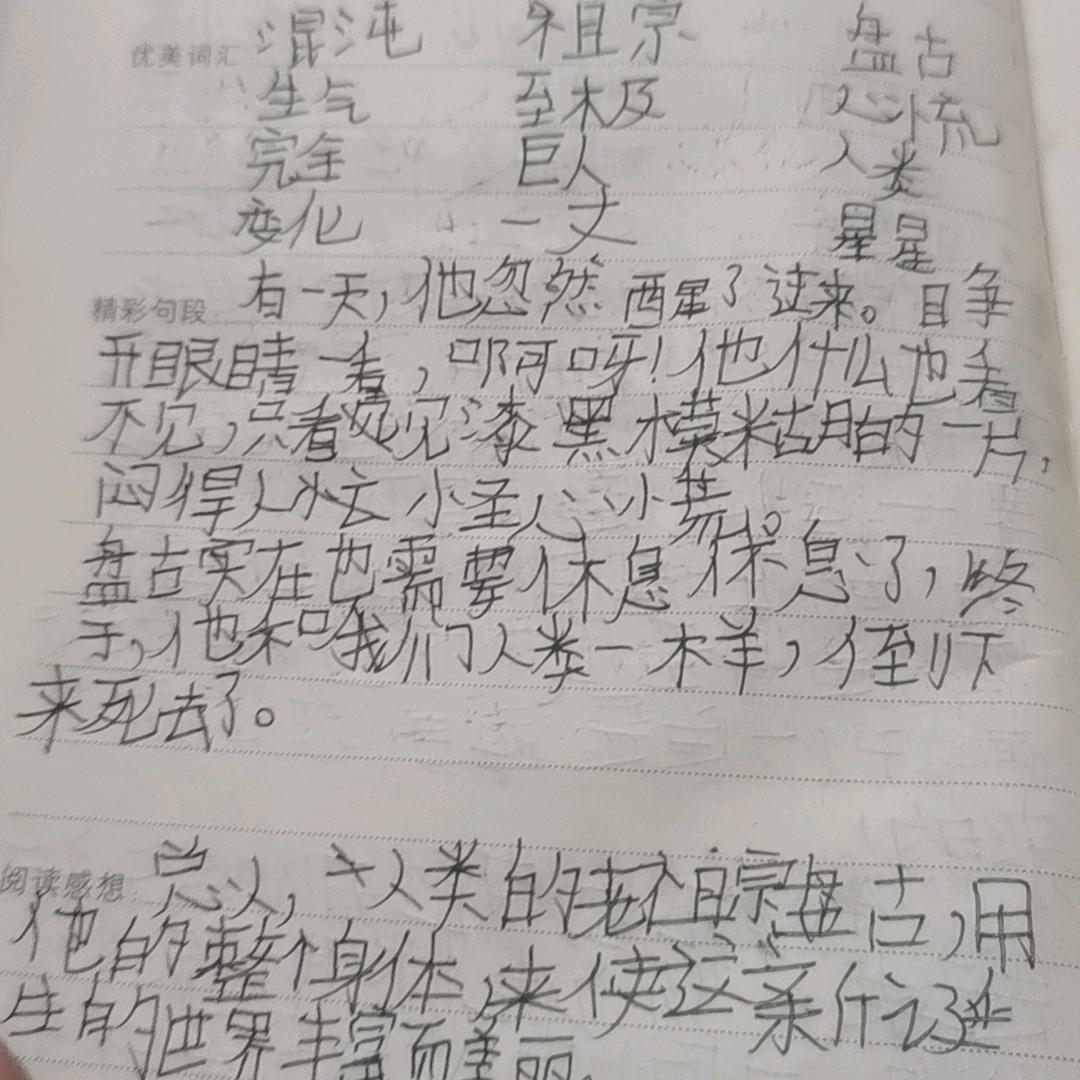 优美词汇 混沌 祖宗 盘古
生气 至极 心慌
完全 巨人 人类
变化 一丈 星星
精彩句段 有一天,他忽然醒了过来。睁
开眼睛一看,啊呀!他什么也看
不见,只看见漆黑模糊的一片,
闷得人心慌。
盘古实在也需要休息休息了,终
于,他和我们人类一样,倒下
来死去了。
阅读感想 总人,人类的老祖宗盘古,用
他的整个身体,来使这
生的世界丰富而美丽。